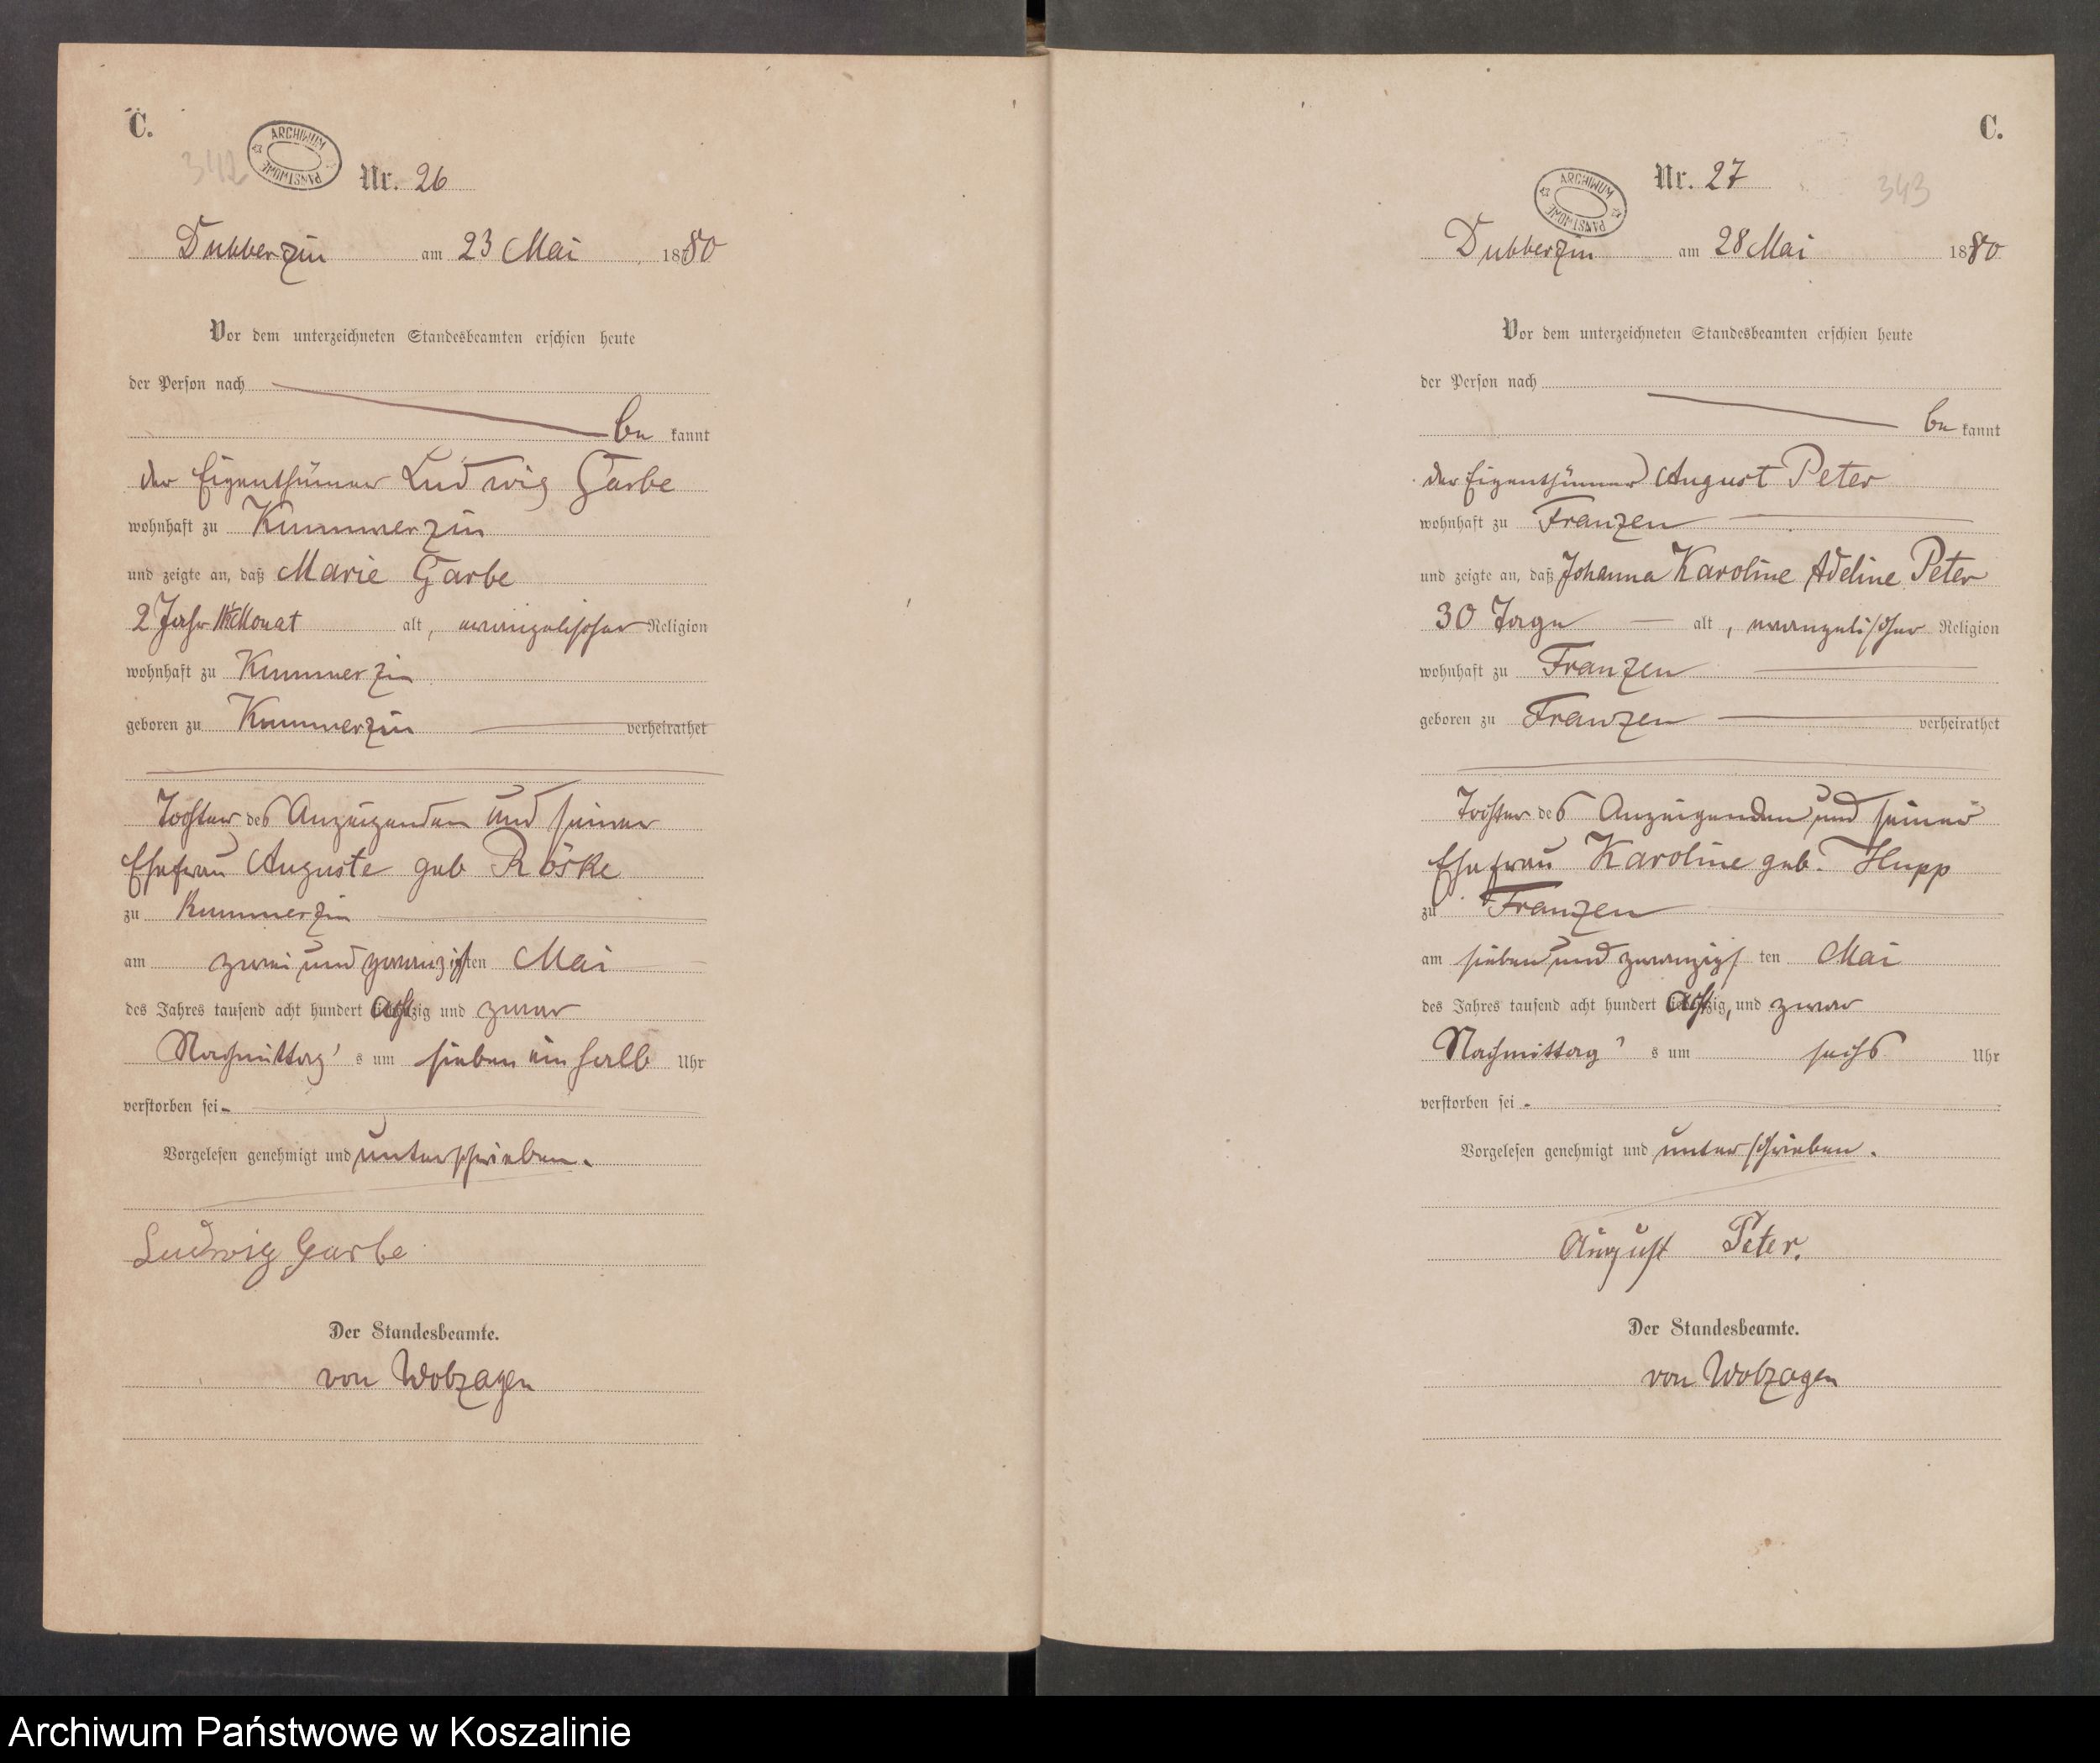 C.
342
ARCHIWUM
PAŃSTWOWE
Nr. 26
Dubberzin am 23 Mai 1880
Vor dem unterzeichneten Standesbeamten erschien heute
der Person nach
be kannt
der Eigenthümer Ludwig Garbe
wohnhaft zu Kummerzin
und zeigte an, daß Marie Garbe
2 Jahr Monat alt, evangelischer Religion
wohnhaft zu Kummerzin
geboren zu Kummerzin verheirathet
Tochter des Anzeigenden und seiner
Ehefrau Auguste geb Röske
zu Kummerzin
am zwei und zwanzigsten Mai
des Jahres tausend acht hundert achtzig und zwar
Nachmittag's um sieben ein halb Uhr
verstorben sei
Vorgelesen genehmigt und unterschrieben.
Ludwig Garbe
Der Standesbeamte.
von Wobzagen
C.
343
ARCHIWUM
PAŃSTWOWE
Nr. 27
Dubberzin am 28 Mai 1880
Vor dem unterzeichneten Standesbeamten erschien heute
der Person nach
be kannt
der Eigenthümer August Peter
wohnhaft zu Franzen
und zeigte an, daß Johanna Karoline Adeline Peter
30 Tage alt, evangelischer Religion
wohnhaft zu Franzen
geboren zu Franzen verheirathet
Tochter des Anzeigenden und seiner
Ehefrau Karoline geb. Hupp
zu Franzen
am sieben und zwanzigsten Mai
des Jahres tausend acht hundert achtzig, und zwar
Nachmittag's um sechs Uhr
verstorben sei
Vorgelesen genehmigt und unterschrieben.
August Peter.
Der Standesbeamte.
von Wobzagen
Archiwum Państwowe w Koszalinie